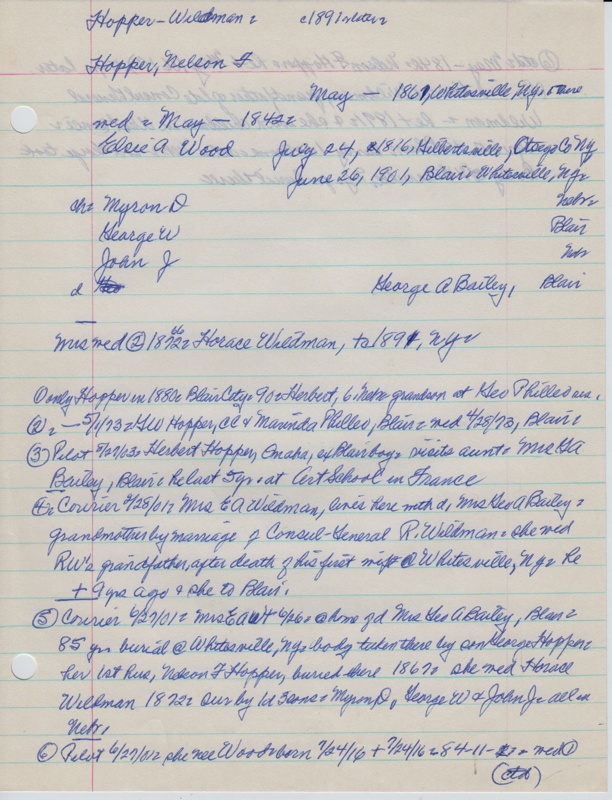 Hopper-Wildman = c1891 later =
Hopper, Nelson F
May - 1867, Whitesville Ny = there
med = May - 1842 =
Elsie A Wood July 24, c1816, Gilbertsville, Otsego Co Ny
June 26, 1901, Blair = Whitesville, Ny =
ch = Myron D Nebr =
George W Blair
John J Nebr
d George A Bailey, Blair
Mrs med (2) 1872 = Horace Wildman, to 1891, Ny =
only Hopper in 1880 = Blair City = 90 = Herbert, 6, Nebr = grandson at Geo Philleo res.
(2) = 5/1/73 = GW Hopper, CC & Marinda Philleo, Blair = med 4/28/73, Blair =
(3) Pilot 5/27/03 = Herbert Hopper, Omaha, ex Blair boy = visits aunt = Mrs GA
Bailey, Blair = he last 5 yrs at Art School in France
(4) = Courier 4/25/01 = Mrs EA Wildman, lives here with d, Mrs Geo A Bailey =
grandmother by marriage of Consul-General R. Wildman = she med
RW's grandfather, after death of his first wife @ Whitesville, Ny = he
+ 9 yrs ago & she to Blair.
(5) Courier 6/27/01 = Mrs EAW + 6/26 = @ home of d Mrs Geo A Bailey, Blair =
85 yrs burial @ Whitesville, Ny = body taken there by son George Hopper =
her 1st hus, Nelson F Hopper, buried there 1867 = she med Horace
Wildman 1872 = sur by 1d 3 sons = Myron D, George W & John J = all in
Nebr,
(6) Pilot 6/27/01 = she nee Wood = born 7/24/16 + 7/24/16 = 84-11- = med (1)
(ctd)